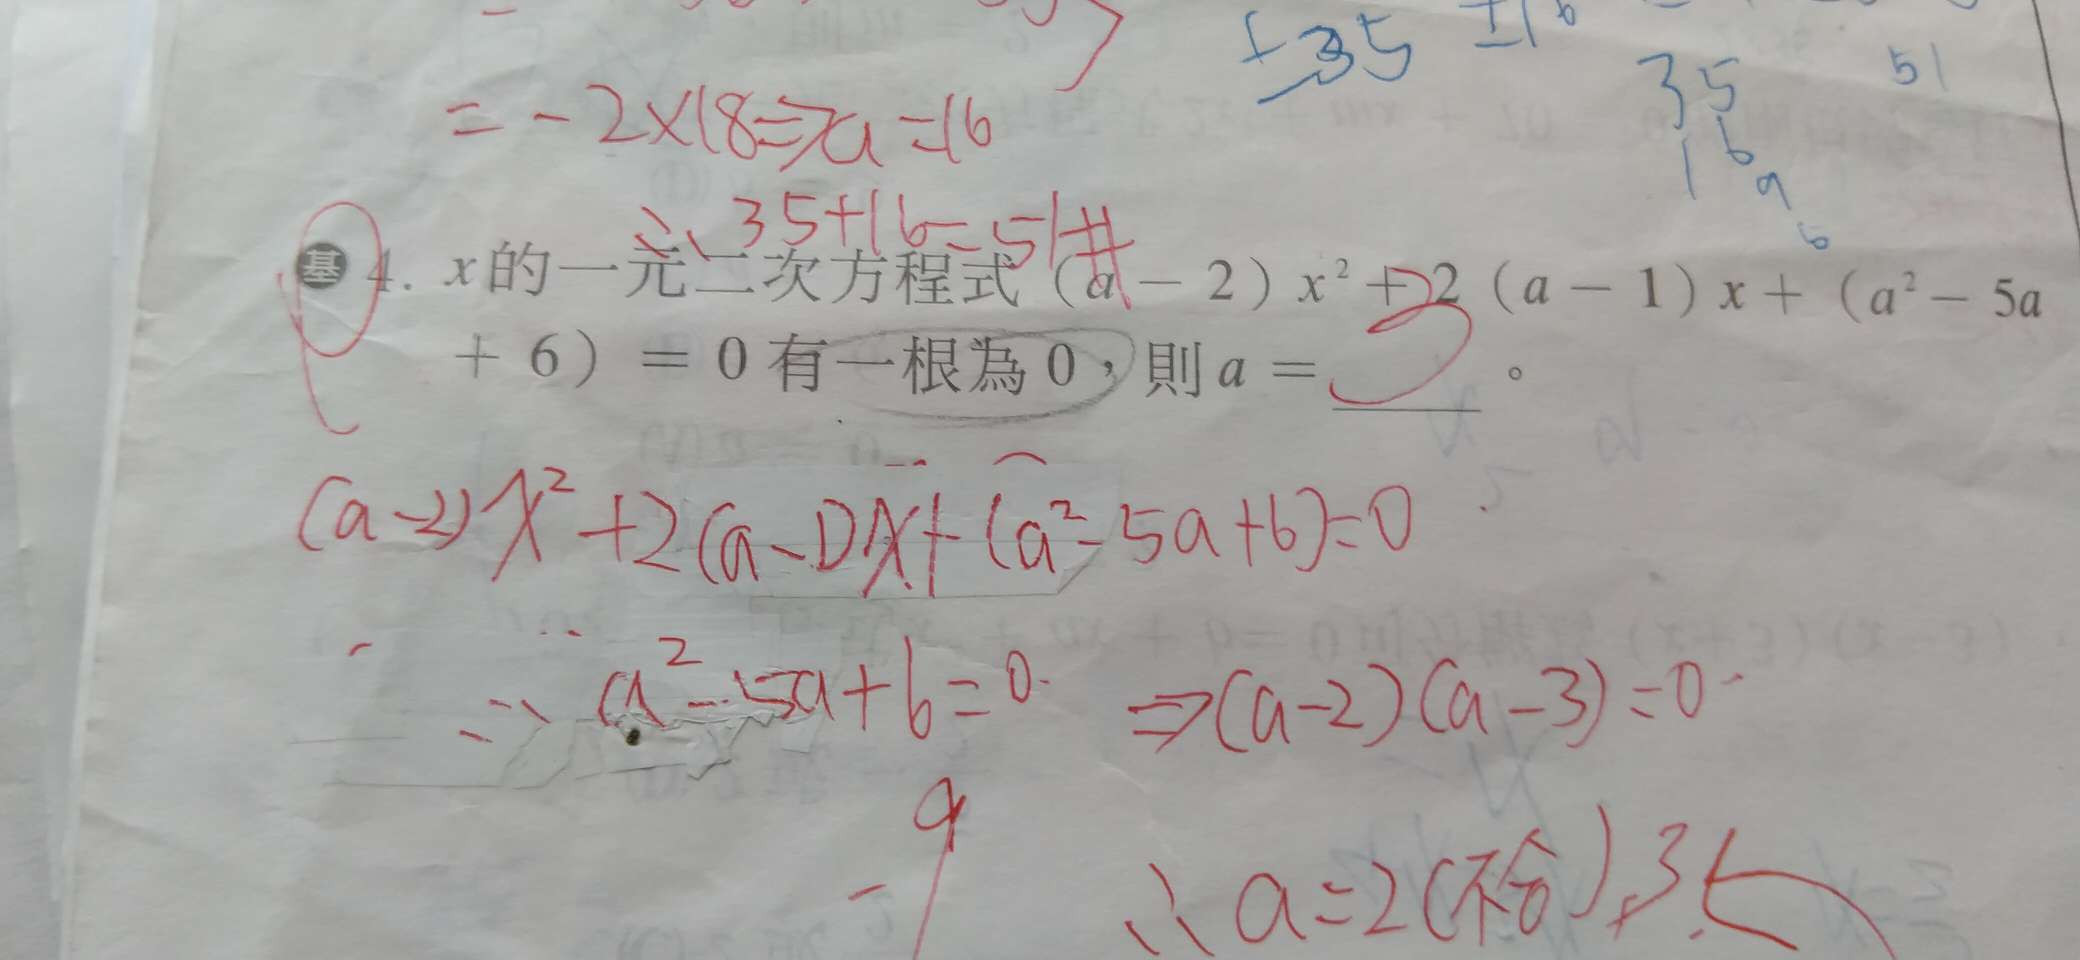 +35 ±16
35 51
= -2×18⇒a=16
16
a
6
∴ 35+16=51#
基 4. x的一元二次方程式(a－2)x²＋2(a－1)x＋(a²－5a
＋6)＝0有一根為0，則a＝ 3 。
(a-2)x²+2(a-1)x+(a²-5a+6)=0
∴ a²-5a+6=0 ⇒(a-2)(a-3)=0
∴ a=2(不合),3